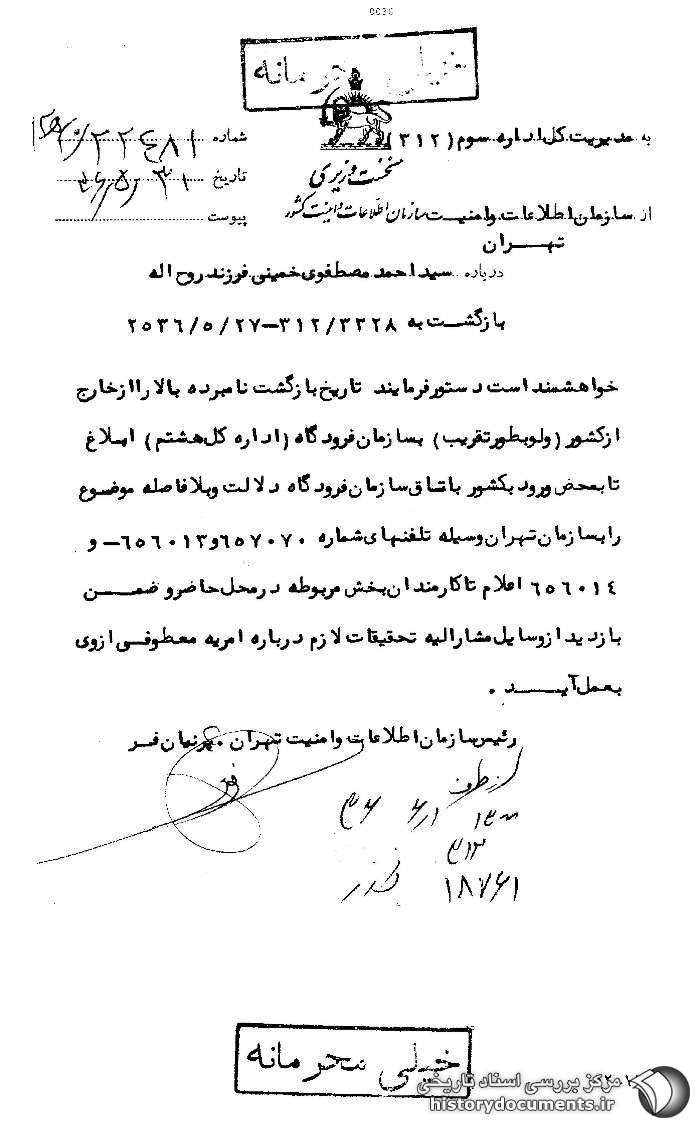 0036
خیلی محرمانه
به مدیریت کل اداره سوم (۳۱۲)
شماره ۲۲۴۸۱
نخست وزیری
تاریخ ۳۶/۵/۳۱
از سازمان اطلاعات و امنیت سازمان اطلاعات و امنیت کشور
پیوست
تهران
درباره سید احمد مصطفوی خمینی فرزند روح اله
بازگشت به ۳۱۲/۳۳۲۸-۲۵۳۶/۵/۲۷
خواهشمند است دستور فرمایند تاریخ بازگشت نامبرده بالا را از خارج
از کشور (ولو بطور تقریب) بسازمان فرودگاه (اداره کل هشتم) ابلاغ
تا بمحض ورود بکشور باتاق سازمان فرودگاه دلالت و بلافاصله موضوع
را بسازمان تهران وسیله تلفنهای شماره ۶۵۷۰۷۰ و ۶۵۶۰۱۳ - و
۶۵۶۰۱۴ اعلام تا کارمندان بخش مربوطه در محل حاضر و ضمن
بازدید از وسایل مشارالیه تحقیقات لازم درباره امریه معطوفی از وی
بعمل آید .
رئیس سازمان اطلاعات و امنیت تهران . پرنیان فر
از طرف
۳۶ ۶/۱
۳۱۲
۱۸۷۶۱
خیلی محرمانه
مرکز بررسی اسناد تاریخی
historydocuments.ir